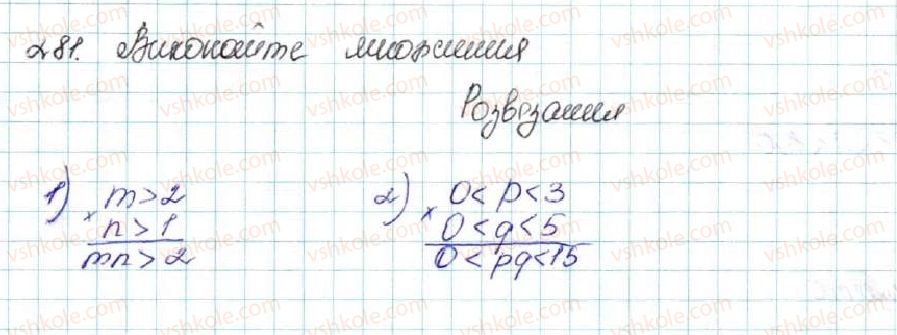 281. Виконайте множення
Розв'язання
1) m > 2
× n > 1
mn > 2
2) 0 < p < 3
× 0 < q < 5
0 < pq < 15
vshkole.com